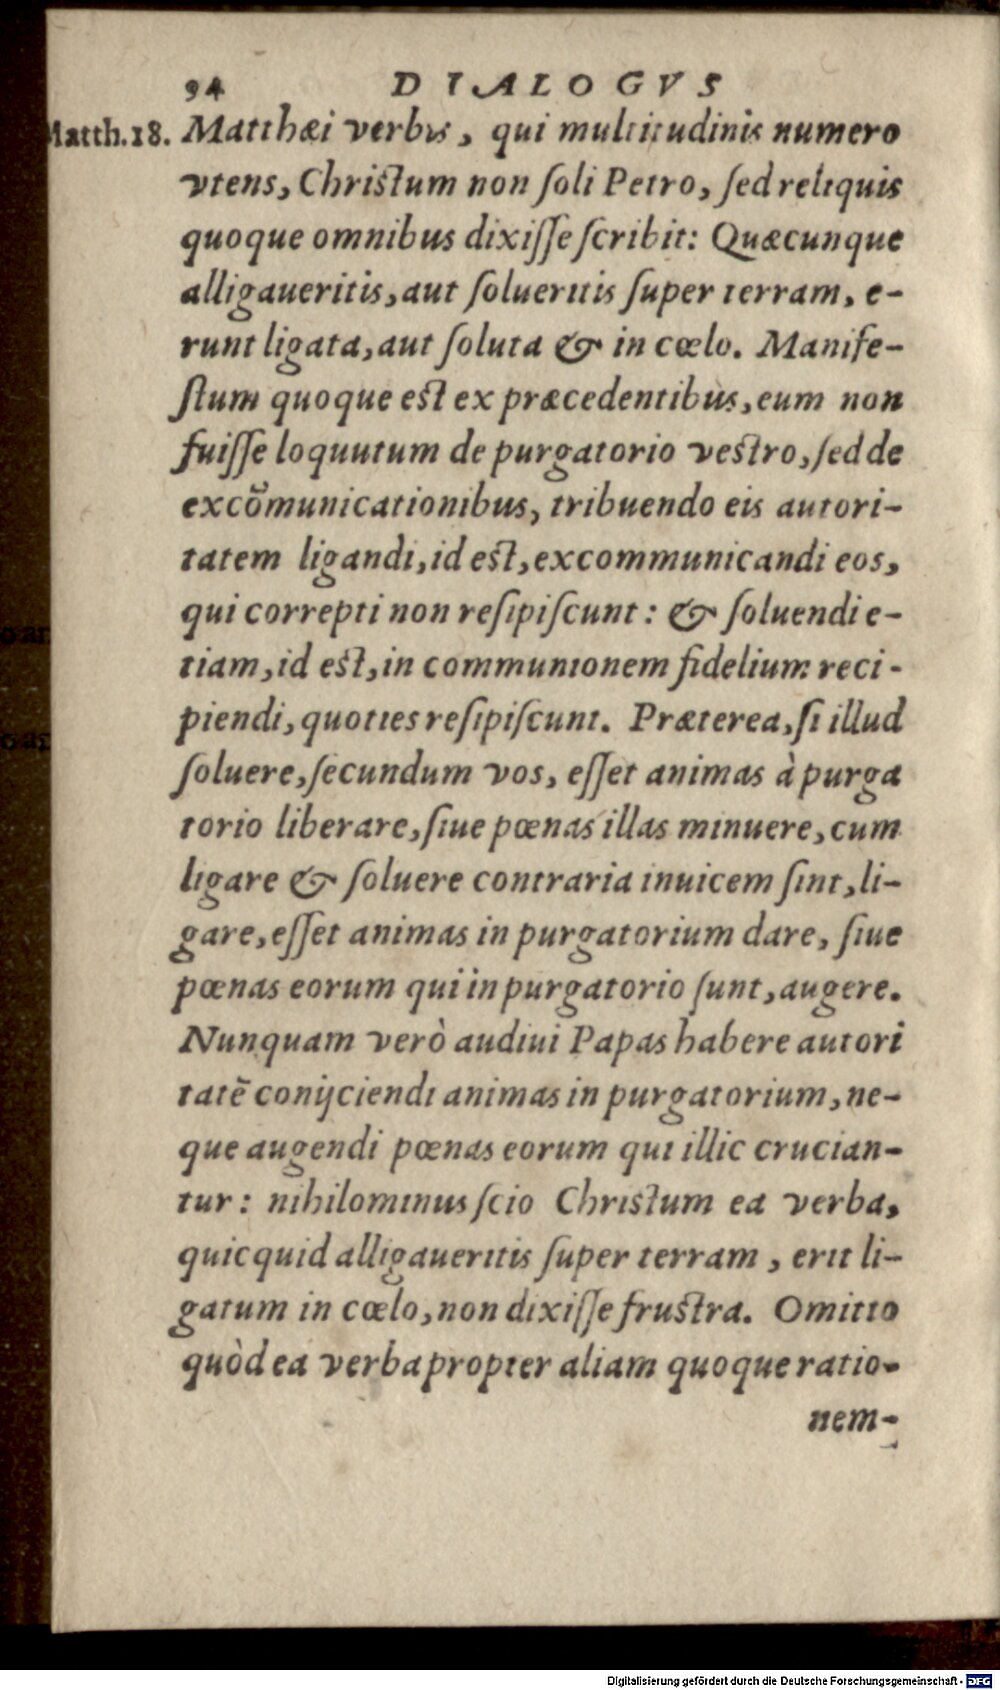 94 DIALOGVS
Matth.18. Matthæi verbis, qui multitudinis numero
vtens, Christum non ſoli Petro, ſed reliquis
quoque omnibus dixiſſe ſcribit: Quæcunque
alligaueritis, aut ſolueritis ſuper terram, e-
runt ligata, aut ſoluta & in cœlo. Manife-
ſtum quoque est ex præcedentibus, eum non
fuiſſe loquutum de purgatorio vestro, ſed de
excõmunicationibus, tribuendo eis autori-
tatem ligandi, id est, excommunicandi eos,
qui correpti non reſipiſcunt: & ſoluendi e-
tiam, id est, in communionem fidelium reci-
piendi, quoties reſipiſcunt. Præterea, ſi illud
ſoluere, ſecundum vos, eſſet animas à purga
torio liberare, ſiue pœnas illas minuere, cum
ligare & ſoluere contraria inuicem ſint, li-
gare, eſſet animas in purgatorium dare, ſiue
pœnas eorum qui in purgatorio ſunt, augere.
Nunquam verò audiui Papas habere autori
tatẽ conijciendi animas in purgatorium, ne-
que augendi pœnas eorum qui illic crucian-
tur: nihilominus ſcio Christum ea verba,
quicquid alligaueritis ſuper terram, erit li-
gatum in cœlo, non dixiſſe frustra. Omitto
quòd ea verba propter aliam quoque ratio-
nem-
Digitalisierung gefördert durch die Deutsche Forschungsgemeinschaft - DFG